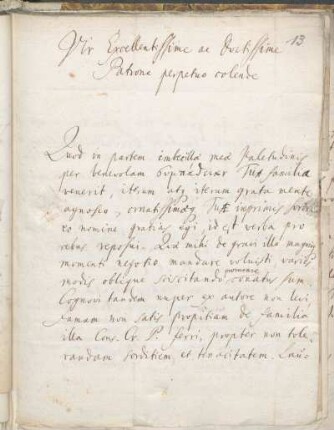 13
Vir Excellentissime ac Doctissime
Patrone perpetuo colende
Quod in partem imbecillæ meæ Valetudinis
per benevolam συμπάθειαν Tuæ familiæ
venerit, iterum atq iterum grata mente
agnosco, ornatissimæq Tuæ imprimis
eo nomine gratias egi, id est verba pro
rebus reposui. Quid mihi de gravi illo magniq
momenti negotio mandare voluisti variis
modis oblique sciscitando conatus sum
Cognovi tandem nuper ex autore non levi,
famam non satis propitiam de familia
illa Cons. Cr. P. ferri, propter non tole
randam sorditiem, et tenacitatem.